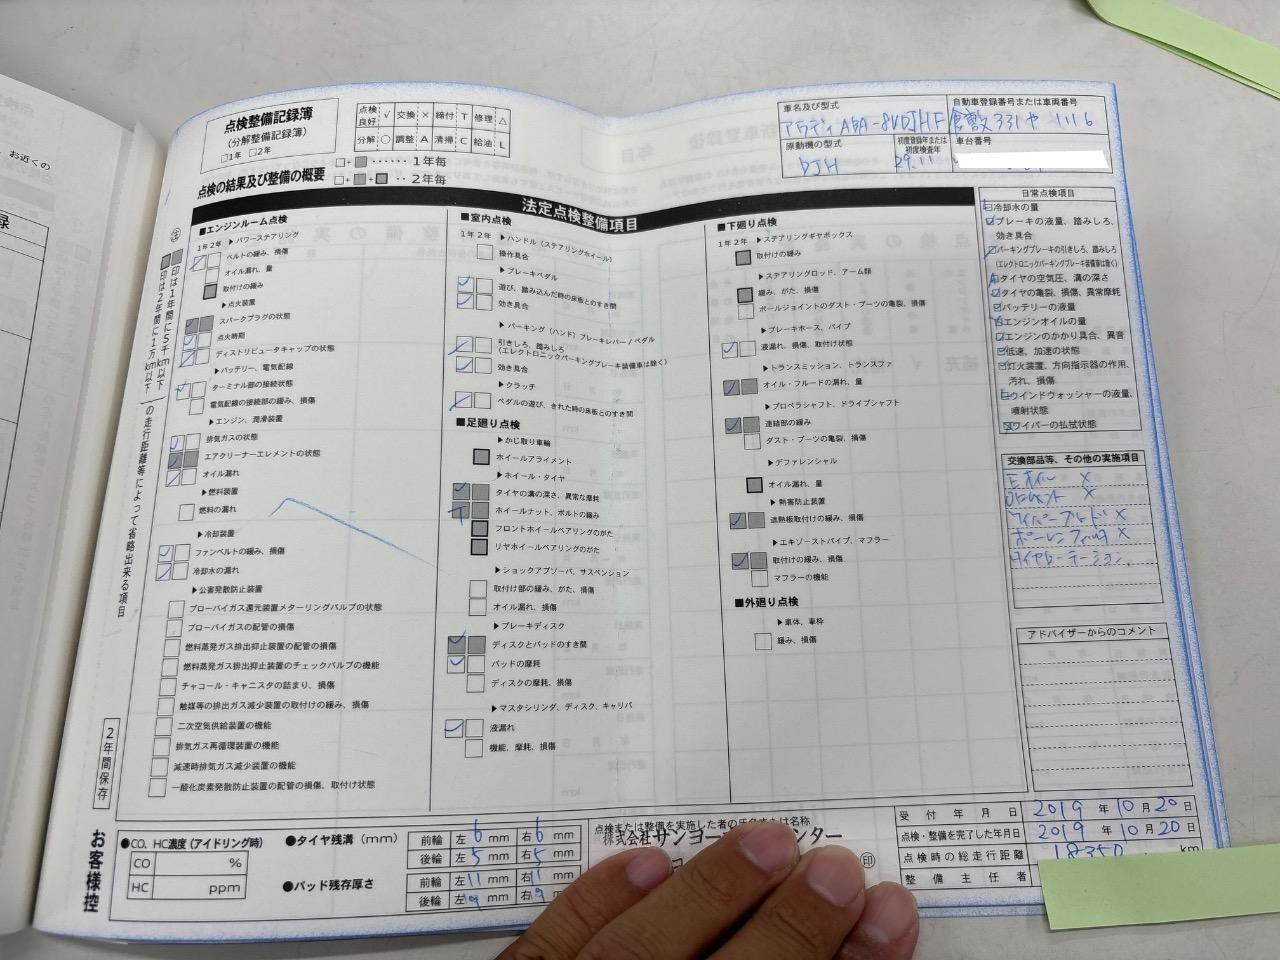 お近くの
録
点検整備記録簿
(分解整備記録簿)
□1年 □2年
点検良好 √ 交換 × 締付 T 修理 △
分解 ○ 調整 A 清掃 C 給油 L
点検の結果及び整備の概要
□+■‥‥‥1年毎
□+■+■‥2年毎
車名及び型式
アウディ ABA-8VDJHF
自動車登録番号または車両番号
倉敷 331 や 1116
原動機の型式
DJH
初度登録年または初度検査年
29.11
車台番号
法定点検整備項目
印は1年間に5千km以下
印は2年間に1万km以下
の走行距離等によって省略出来る項目
■エンジンルーム点検
1年 2年
▶パワーステアリング
ベルトの緩み、損傷
オイル漏れ、量
取付けの緩み
▶点火装置
スパークプラグの状態
点火時期
ディストリビュータキャップの状態
▶バッテリー、電気配線
ターミナル部の接続状態
電気配線の接続部の緩み、損傷
▶エンジン、潤滑装置
排気ガスの状態
エアクリーナーエレメントの状態
オイル漏れ
▶燃料装置
燃料の漏れ
▶冷却装置
ファンベルトの緩み、損傷
冷却水の漏れ
▶公害発散防止装置
ブローバイガス還元装置メターリングバルブの状態
ブローバイガスの配管の損傷
燃料蒸発ガス排出抑止装置の配管の損傷
燃料蒸発ガス排出抑止装置のチェックバルブの機能
チャコール・キャニスタの詰まり、損傷
触媒等の排出ガス減少装置の取付けの緩み、損傷
二次空気供給装置の機能
排気ガス再循環装置の機能
減速時排気ガス減少装置の機能
一酸化炭素発散防止装置の配管の損傷、取付け状態
■室内点検
1年 2年
▶ハンドル(ステアリングホイール)
操作具合
▶ブレーキペダル
遊び、踏み込んだ時の床板とのすき間
効き具合
▶パーキング(ハンド)ブレーキレバー/ペダル
引きしろ、踏みしろ
(エレクトロニックパーキングブレーキ装備車は除く)
効き具合
▶クラッチ
ペダルの遊び、きれた時の床板とのすき間
■足廻り点検
▶かじ取り車輪
ホイールアライメント
▶ホイール・タイヤ
タイヤの溝の深さ、異常な摩耗
ホイールナット、ボルトの緩み
フロントホイールベアリングのがた
リヤホイールベアリングのがた
▶ショックアブソーバ、サスペンション
取付け部の緩み、がた、損傷
オイル漏れ、損傷
▶ブレーキディスク
ディスクとパッドのすき間
パッドの摩耗
ディスクの摩耗、損傷
▶マスタシリンダ、ディスク、キャリパ
液漏れ
機能、摩耗、損傷
■下廻り点検
1年 2年
▶ステアリングギヤボックス
取付けの緩み
▶ステアリングロッド、アーム類
緩み、がた、損傷
ボールジョイントのダスト・ブーツの亀裂、損傷
▶ブレーキホース、パイプ
液漏れ、損傷、取付け状態
▶トランスミッション、トランスファ
オイル・フルードの漏れ、量
▶プロペラシャフト、ドライブシャフト
連結部の緩み
ダスト・ブーツの亀裂、損傷
▶デファレンシャル
オイル漏れ、量
▶熱害防止装置
遮熱板取付けの緩み、損傷
▶エキゾーストパイプ、マフラー
取付けの緩み、損傷
マフラーの機能
■外廻り点検
▶車体、車枠
緩み、損傷
日常点検項目
冷却水の量
ブレーキの液量、踏みしろ、
効き具合
パーキングブレーキの引きしろ、踏みしろ
(エレクトロニックパーキングブレーキ装備車は除く)
タイヤの空気圧、溝の深さ
タイヤの亀裂、損傷、異常摩耗
バッテリーの液量
エンジンオイルの量
エンジンのかかり具合、異音
低速、加速の状態
灯火装置、方向指示器の作用、
汚れ、損傷
ウインドウォッシャーの液量、
噴射状態
ワイパーの払拭状態
交換部品等、その他の実施項目
Eオイル ×
Oエレメント ×
ワイパーブレード ×
ポーレンフィルタ ×
タイヤローテーション
アドバイザーからのコメント
2年間保存
お客様控
●CO、HC濃度(アイドリング時)
CO %
HC ppm
●タイヤ残溝(mm)
前輪 左 6 mm 右 6 mm
後輪 左 5 mm 右 5 mm
●パッド残存厚さ
前輪 左 11 mm 右 11 mm
後輪 左 9 mm 右 9 mm
点検または整備を実施した者の氏名または名称
株式会社サンヨー
ンター
印
受付年月日 2019年10月20日
点検・整備を完了した年月日 2019年10月20日
点検時の総走行距離 18350 km
整備主任者